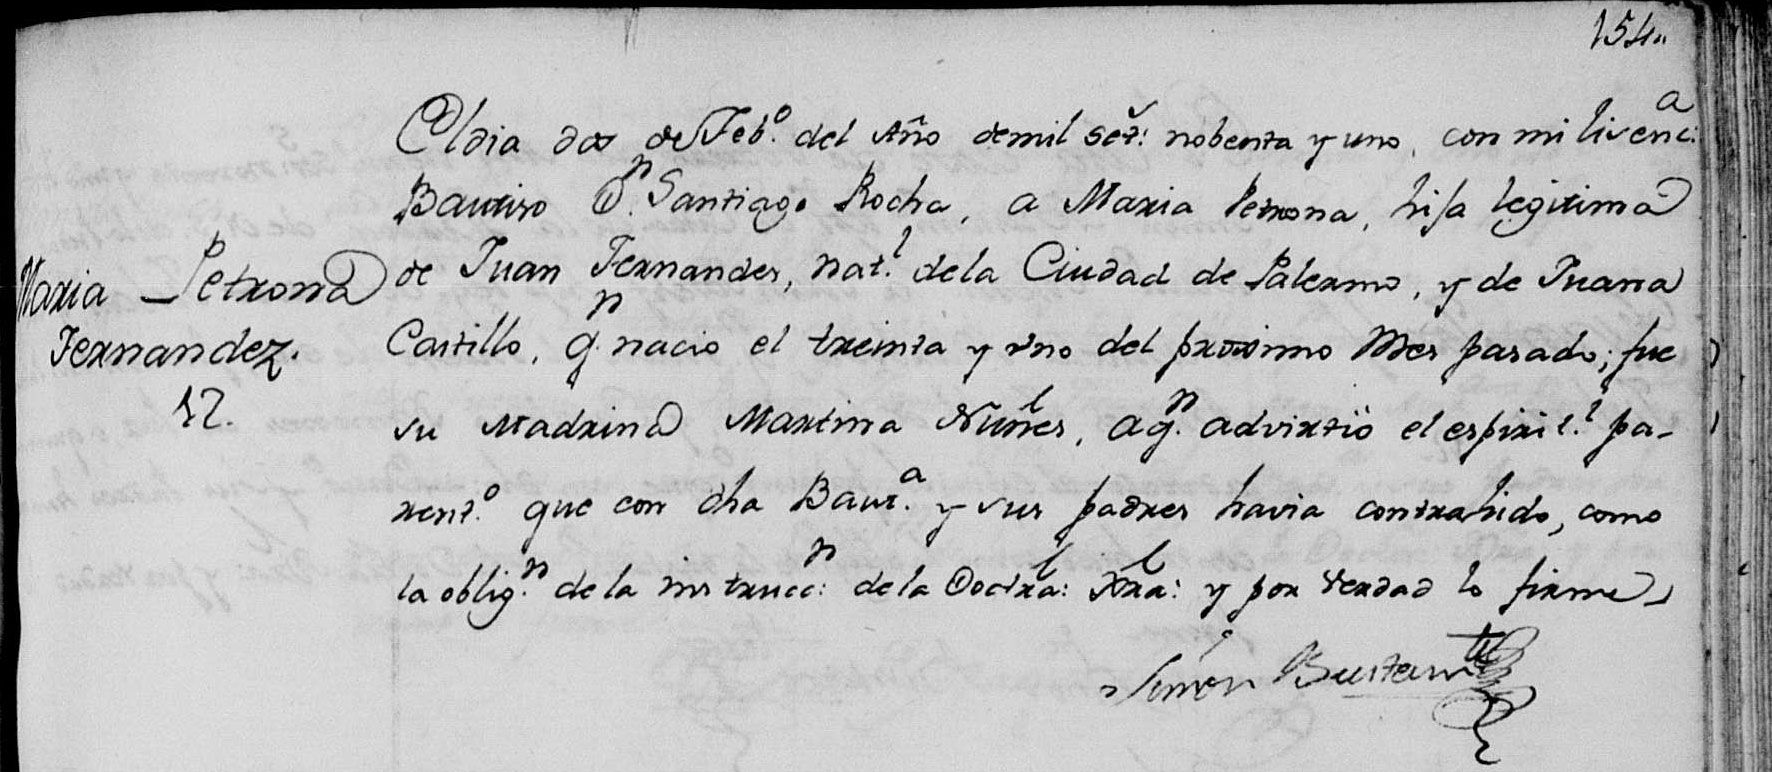 154"
El dia dos de Feb.º del Año de mil set.s nobenta y uno, con mi licenc.a
Bautizo D.n Santiago Rocha, a Maria Petrona, hija legitima
Maria Petrona
Fernandez.
12.
de Juan Fernandes, nat.l de la Ciudad de Palermo, y de Juana
Castillo, q.n nacio el treinta y uno del proximo Mes pasado; fue
su Madrina Martina Nuñes, a q.n advirtió el espirit.l pa-
rent.º que con dha Baut.a y sus padres havia contrahido, como
la oblig.n de la instrucc.n de la Doctra: Xna: y por verdad lo firme
Simon Bustam.te